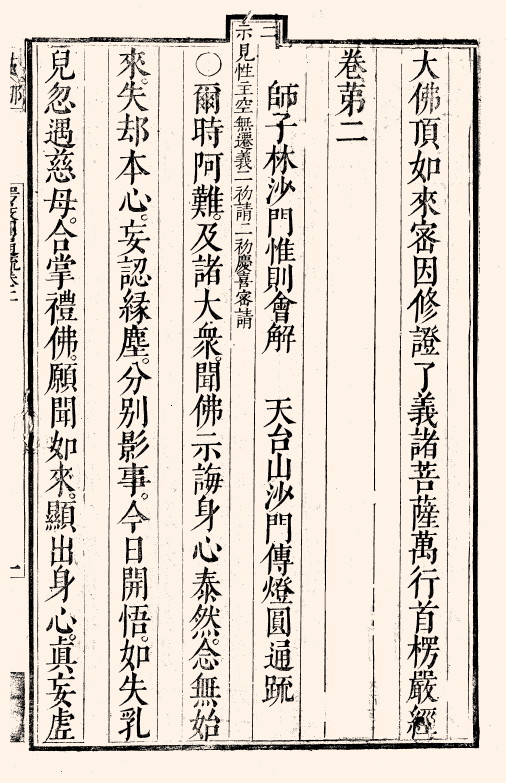 大佛頂如來密因修證了義諸菩薩萬行首楞嚴經
卷苐二
師子林沙門惟則會解　天台山沙門傳燈圓通䟽
二示見性主空無遷義二初請二初慶喜審請
〇爾時阿難。及諸大衆。聞佛示誨身心泰然。念無始
來。失却本心。妄認緣塵。分别影事。今日開悟。如失乳
兒忽遇慈母。合掌禮佛。願聞如來。顯出身心。眞妄虛